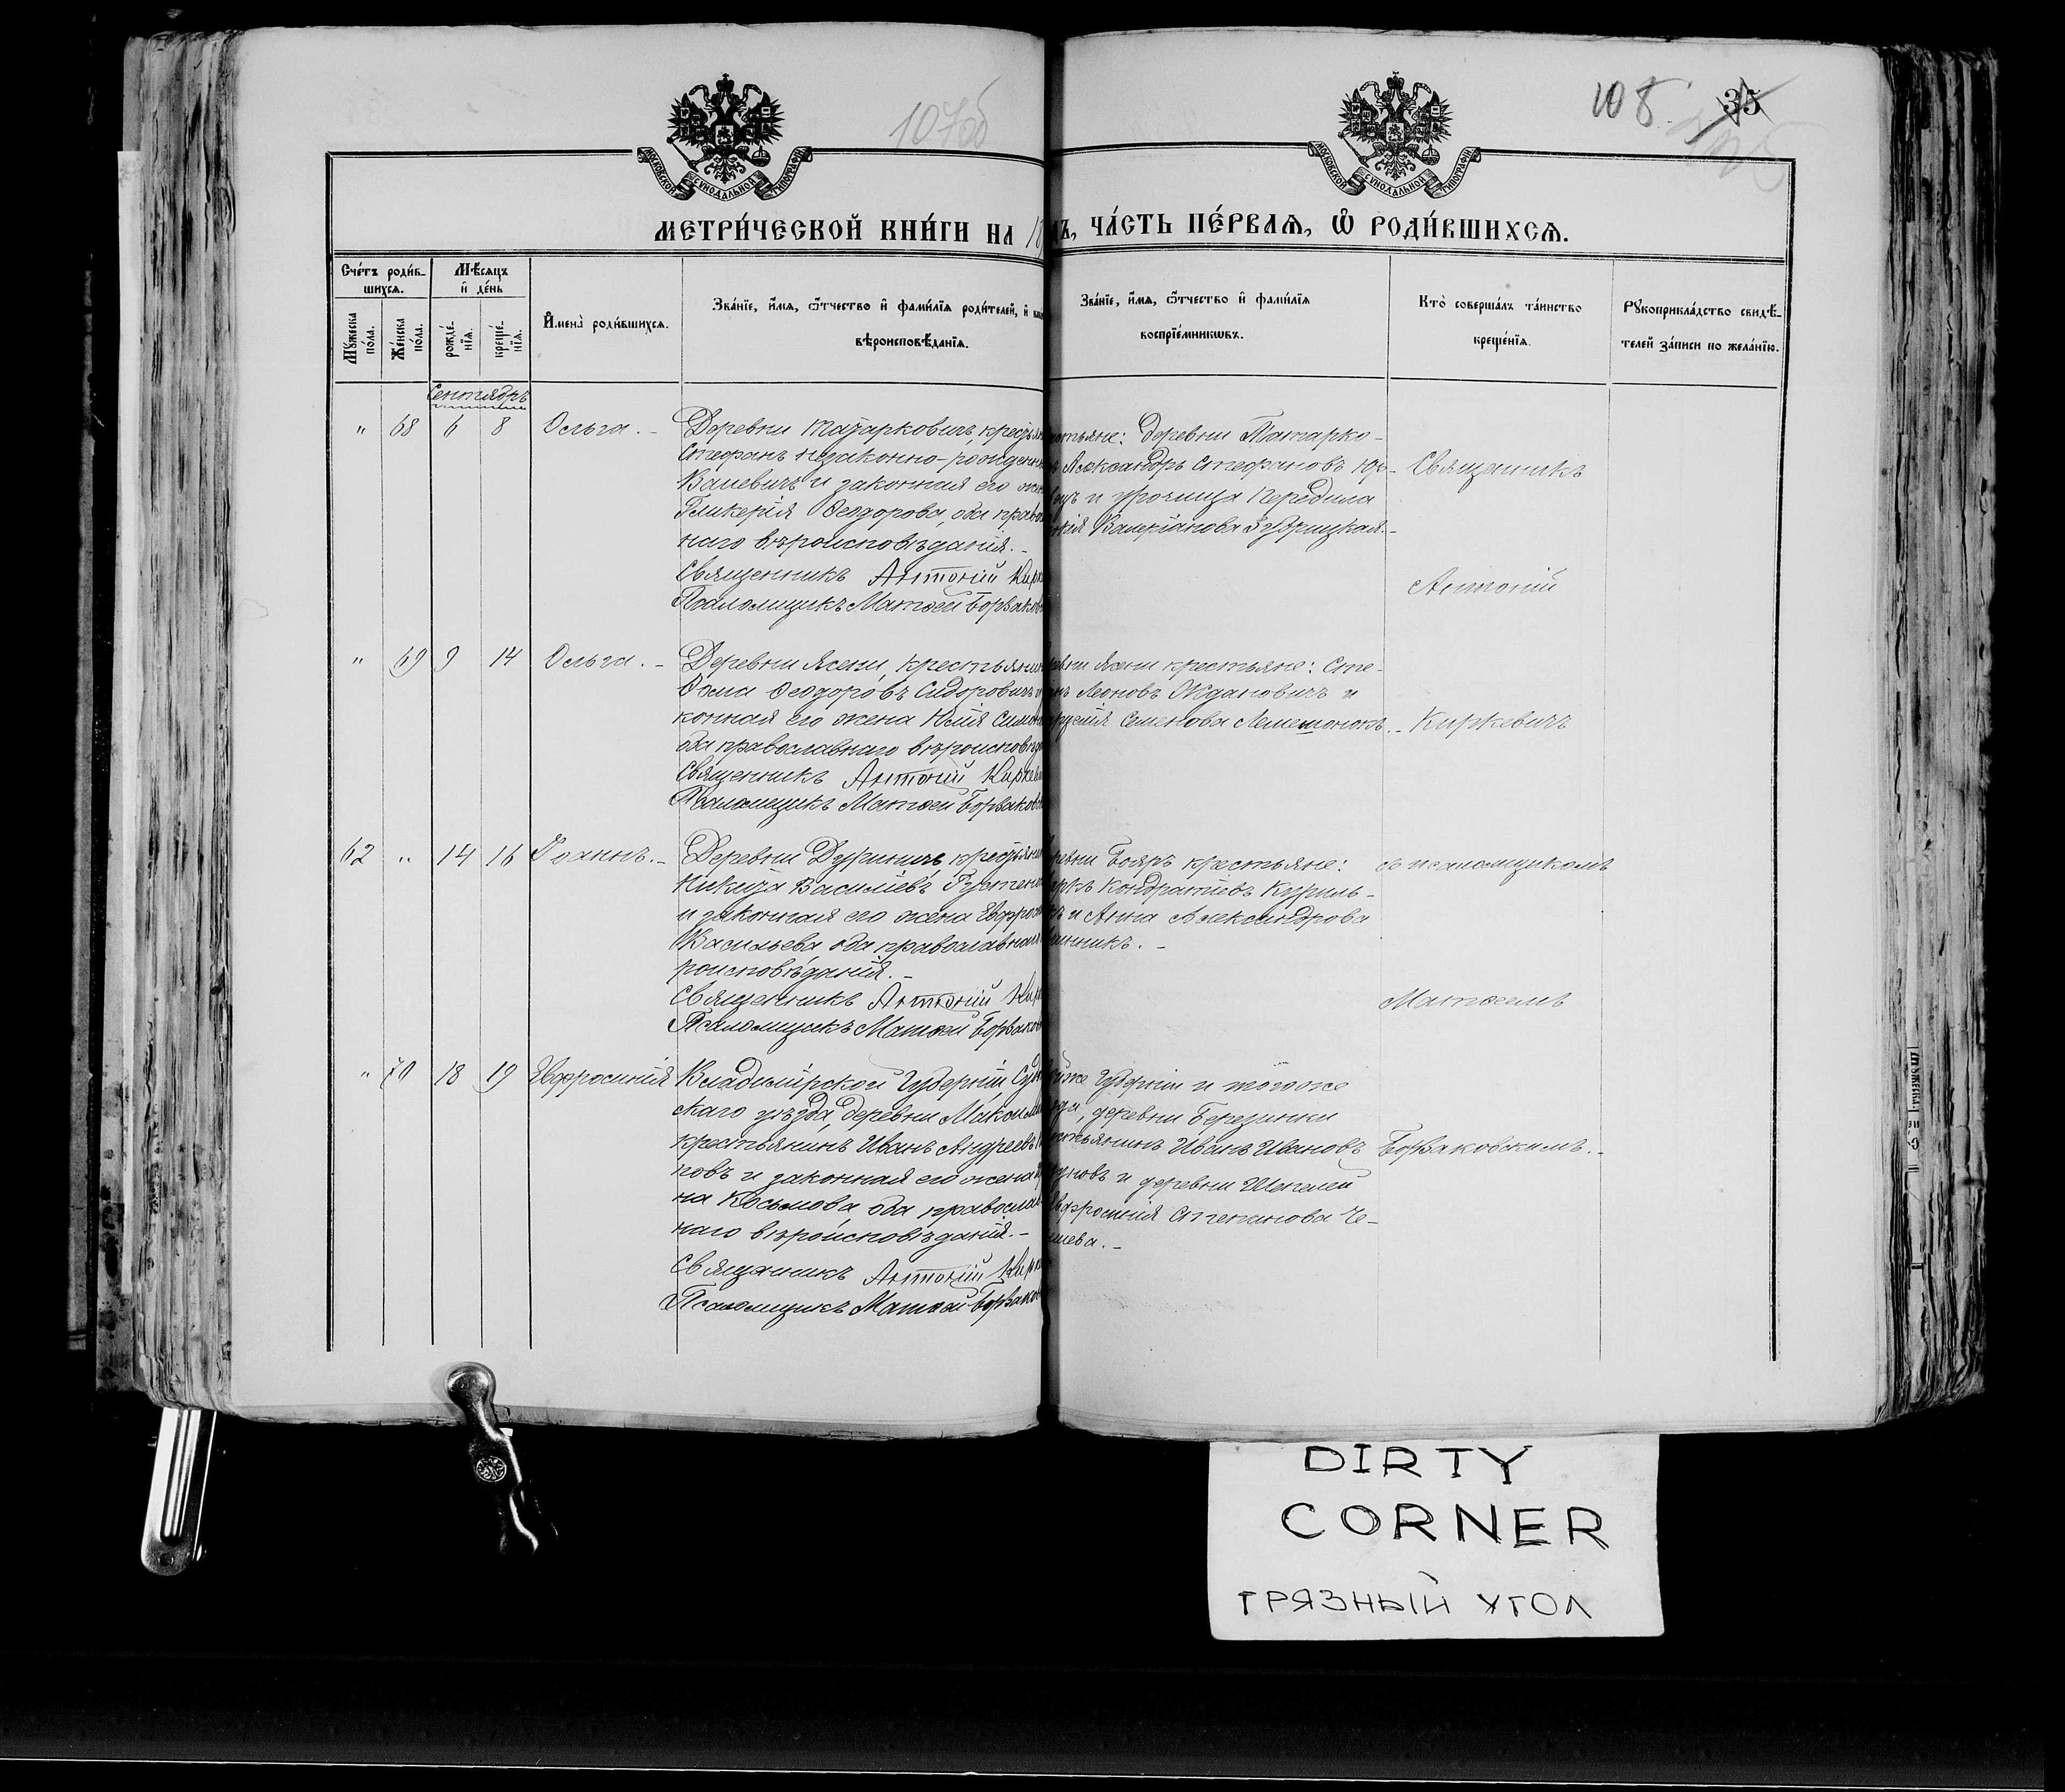 107об
108
35
МОСКОВСКОЙ СѴНОДАЛЬНОЙ ТИПОГРАФІИ
МОСКОВСКОЙ СѴНОДАЛЬНОЙ ТИПОГРАФІИ
МЕТРИ́ЧЕСКОЙ КНИ́ГИ НА 18
ДЪ, ЧА́СТЬ ПЕ́РВАѦ, Ѡ҆ РОДИ́ВШИХСѦ.
Сче́тъ роди́в-
шихсѧ.
Мѣ́сѧцъ
и҆ де́нь
Мꙋ́жеска по́ла.
Же́нска по́ла.
рожде́-нїѧ.
креще́-нїѧ.
И҆мена̀ роди́вшихсѧ.
Зва́нїе, и҆́мѧ, ѻ҆́тчество и҆ фами́лїѧ роди́телей, и҆
вѣроисповѣ́данїѧ.
Зва́нїе, и҆́мѧ, ѻ҆́тчество и҆ фами́лїѧ
воспрїе́мникѡвъ.
Кто̀ соверша́лъ та́инство
креще́нїѧ.
Рꙋкоприкла́дство свидѣ́-
телей за́писи по жела́нїю.
Сентябрь
" 68 6 8 Ольга. -
Деревни Татарковичъ, крестьян
Стефанъ незаконно-рожденн
Валевичъ и законная его жен
Гликерія Ѳеодорова, оба право
наго вѣроисповѣданія. -
Священникъ Антоній Кирк
Псаломщикъ Матѳей Борзаков
стьяне: деревни Татарко-
Александръ Стефановъ
и урочища Передила
Валеріанова
Священникъ
Антоній
" 69 9 14 Ольга. -
Деревни Ясени, крестьянин
Ѳома Ѳеодоровъ Сидоровичъ и
конная его жена Юлія Симо
оба православнаго вѣроисповѣд
Священникъ Антоній Киркеви
Псаломщикъ Матѳей Борзаков
ревни Ясени крестьяне: Сте-
нъ Леоновъ Ждановичъ и
Семенова Лемешонокъ. -
Киркевичъ
62 " 14 16 Іоаннъ. -
Деревни Дуричичъ, крестьянин
Никита Васильевъ
и законная его жена Евфрос
Васильева, оба православнаго
роисповѣданія. -
Священникъ Антоній Кирк
Псаломщикъ Матѳей Борзаков
ревни Бояръ крестьяне:
Кондратіевъ Куриль-
и Анна Александрова
инникъ. -
съ псаломщикомъ
Матѳеемъ
" 70 18 19 Евфросинія
Владимірской Губерніи, Судо
скаго уѣзда, деревни
крестьянинъ Иванъ Андреевъ
новъ и законная его жена
на Косьмова, оба правосла
наго вѣроисповѣданія. -
Священникъ Антоній Кирк
Псаломщикъ Матѳей Борзаков
же Губерніи и тогоже
зда, деревни Березники
стьянинъ Иванъ Ивановъ
уновъ и деревни
Евфросинія Степанова Че-
шева. -
Борзаковскимъ. -
DIRTY
CORNER
ГРЯЗНЫЙ УГОЛ